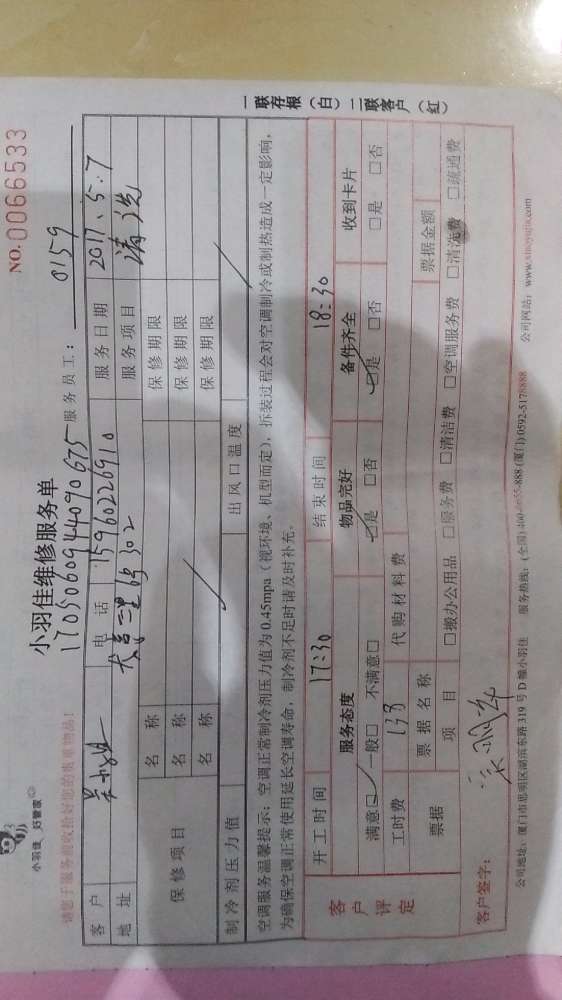 小羽佳 好管家
NO.0066533
小羽佳维修服务单
请您于服务前收拾好您的贵重物品!
1705060944090675 服务员工: 0159
客户 电话 15960226910 服务日期 2017.5.7
地址 302 服务项目 清洗
保修项目 名称 保修期限
名称 保修期限
名称 保修期限
制冷剂压力值 出风口温度
空调服务温馨提示:空调正常制冷剂压力值为0.45mpa(视环境、机型而定),拆装过程会对空调制冷或制热造成一定影响,
为确保空调正常使用延长空调寿命,制冷剂不足时请及时补充。
客户评定 开工时间 17:30 结束时间 18:30
服务态度 物品完好 备件齐全 收到卡片
满意☑ 一般□ 不满意□ ☑是 □否 ☑是 □否 □是 □否
工时费 138 代购材料费
票据 票据名称 票据金额
项目 □搬办公用品 □服务费 □清洁费 □空调服务费 □清洗费 □疏通费
客户签字:
公司地址:厦门市思明区湖滨东路319号D幢小羽佳 服务热线:(全国)400 -888 (厦门)0592-5178888 公司网站:www.xiaoyujia.com
一联存根(白)二联客户(红)